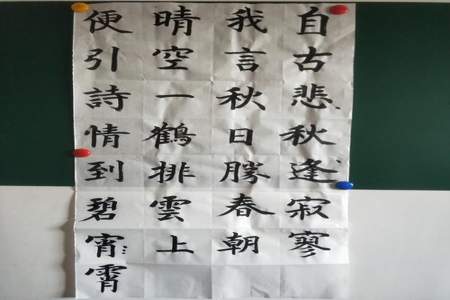 自古悲秋逢寂寥
我言秋日勝春朝
晴空一鶴排雲上
便引詩情到碧宵霄